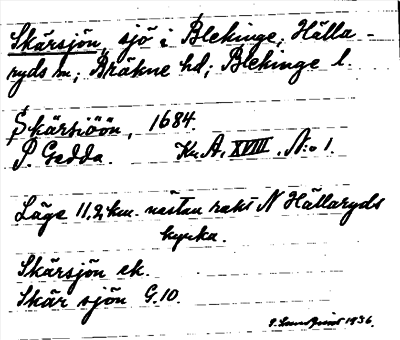 Skärsjön, sjö i Blekinge, Hälla-
ryds sn; Bräkne hd; Blekinge l.
Skärsiöön, 1684.
P. Gedda. Kr. A. XVIII, N:o 1.
Läge 11,2 km. nästan rakt N Hällaryds
kyrka.
Skärsjön ek.
Skär sjön G.10.
1936.